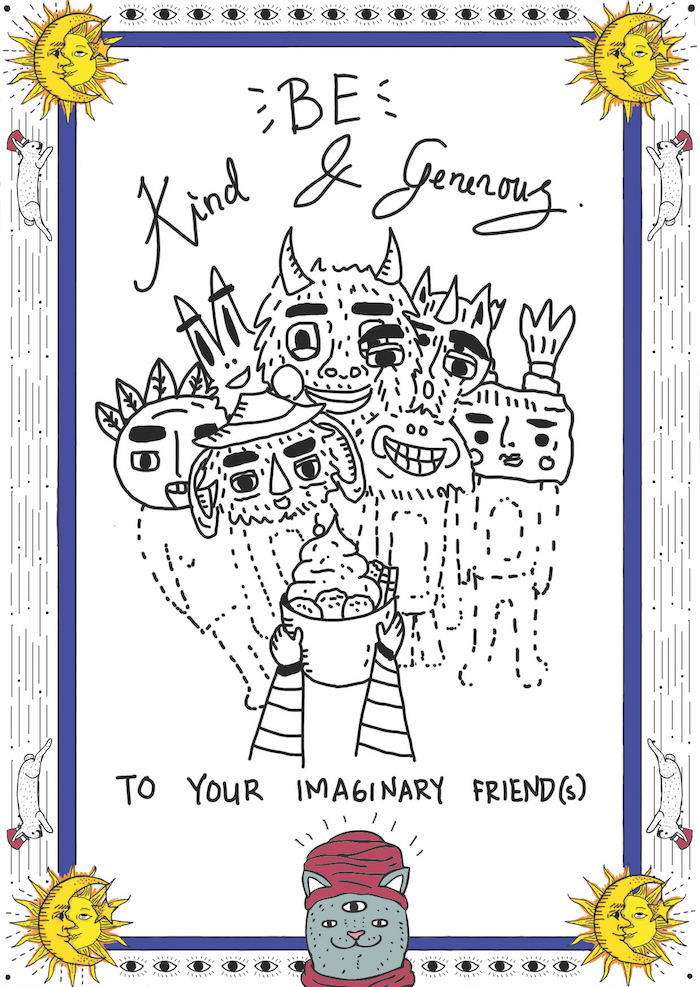 BE
Kind & Generous.
TO YOUR IMAGINARY FRIEND(s)